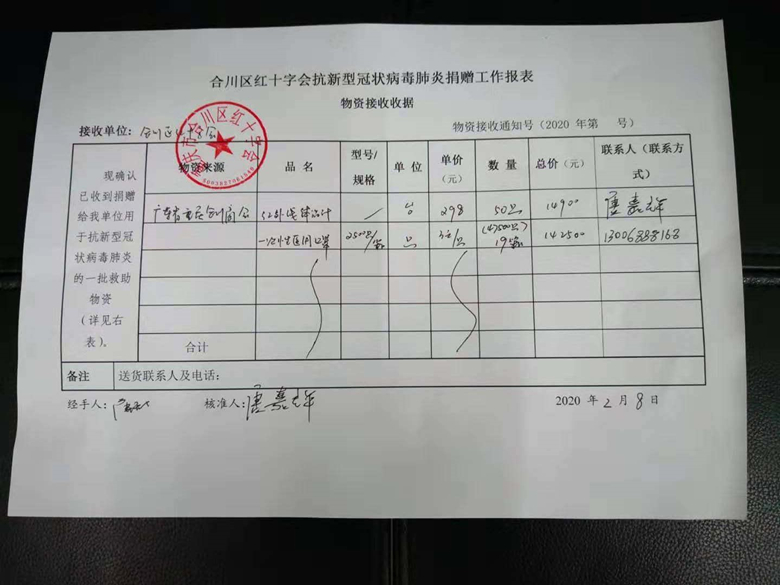 合川区红十字会抗新型冠状病毒肺炎捐赠工作报表
物资接收收据
接收单位：合川区红十字会
物资接收通知号（2020 年第 号）
现确认已收到捐赠给我单位用于抗新型冠状病毒肺炎的一批救助物资（详见右表）。
物资来源 品 名 型号/规格 单 位 单价（元） 数 量 总价（元） 联系人（联系方式）
广东省重庆合川商会 红外线体温计 / 台 298 50台 14900 唐嘉雄
一次性医用口罩 2500只/箱 只 3元/只 (47500只) 19箱 142500 13006888168
合计
备注 送货联系人及电话：
经手人： 核准人：唐嘉雄 2020 年 2 月 8 日
合川区红十字会